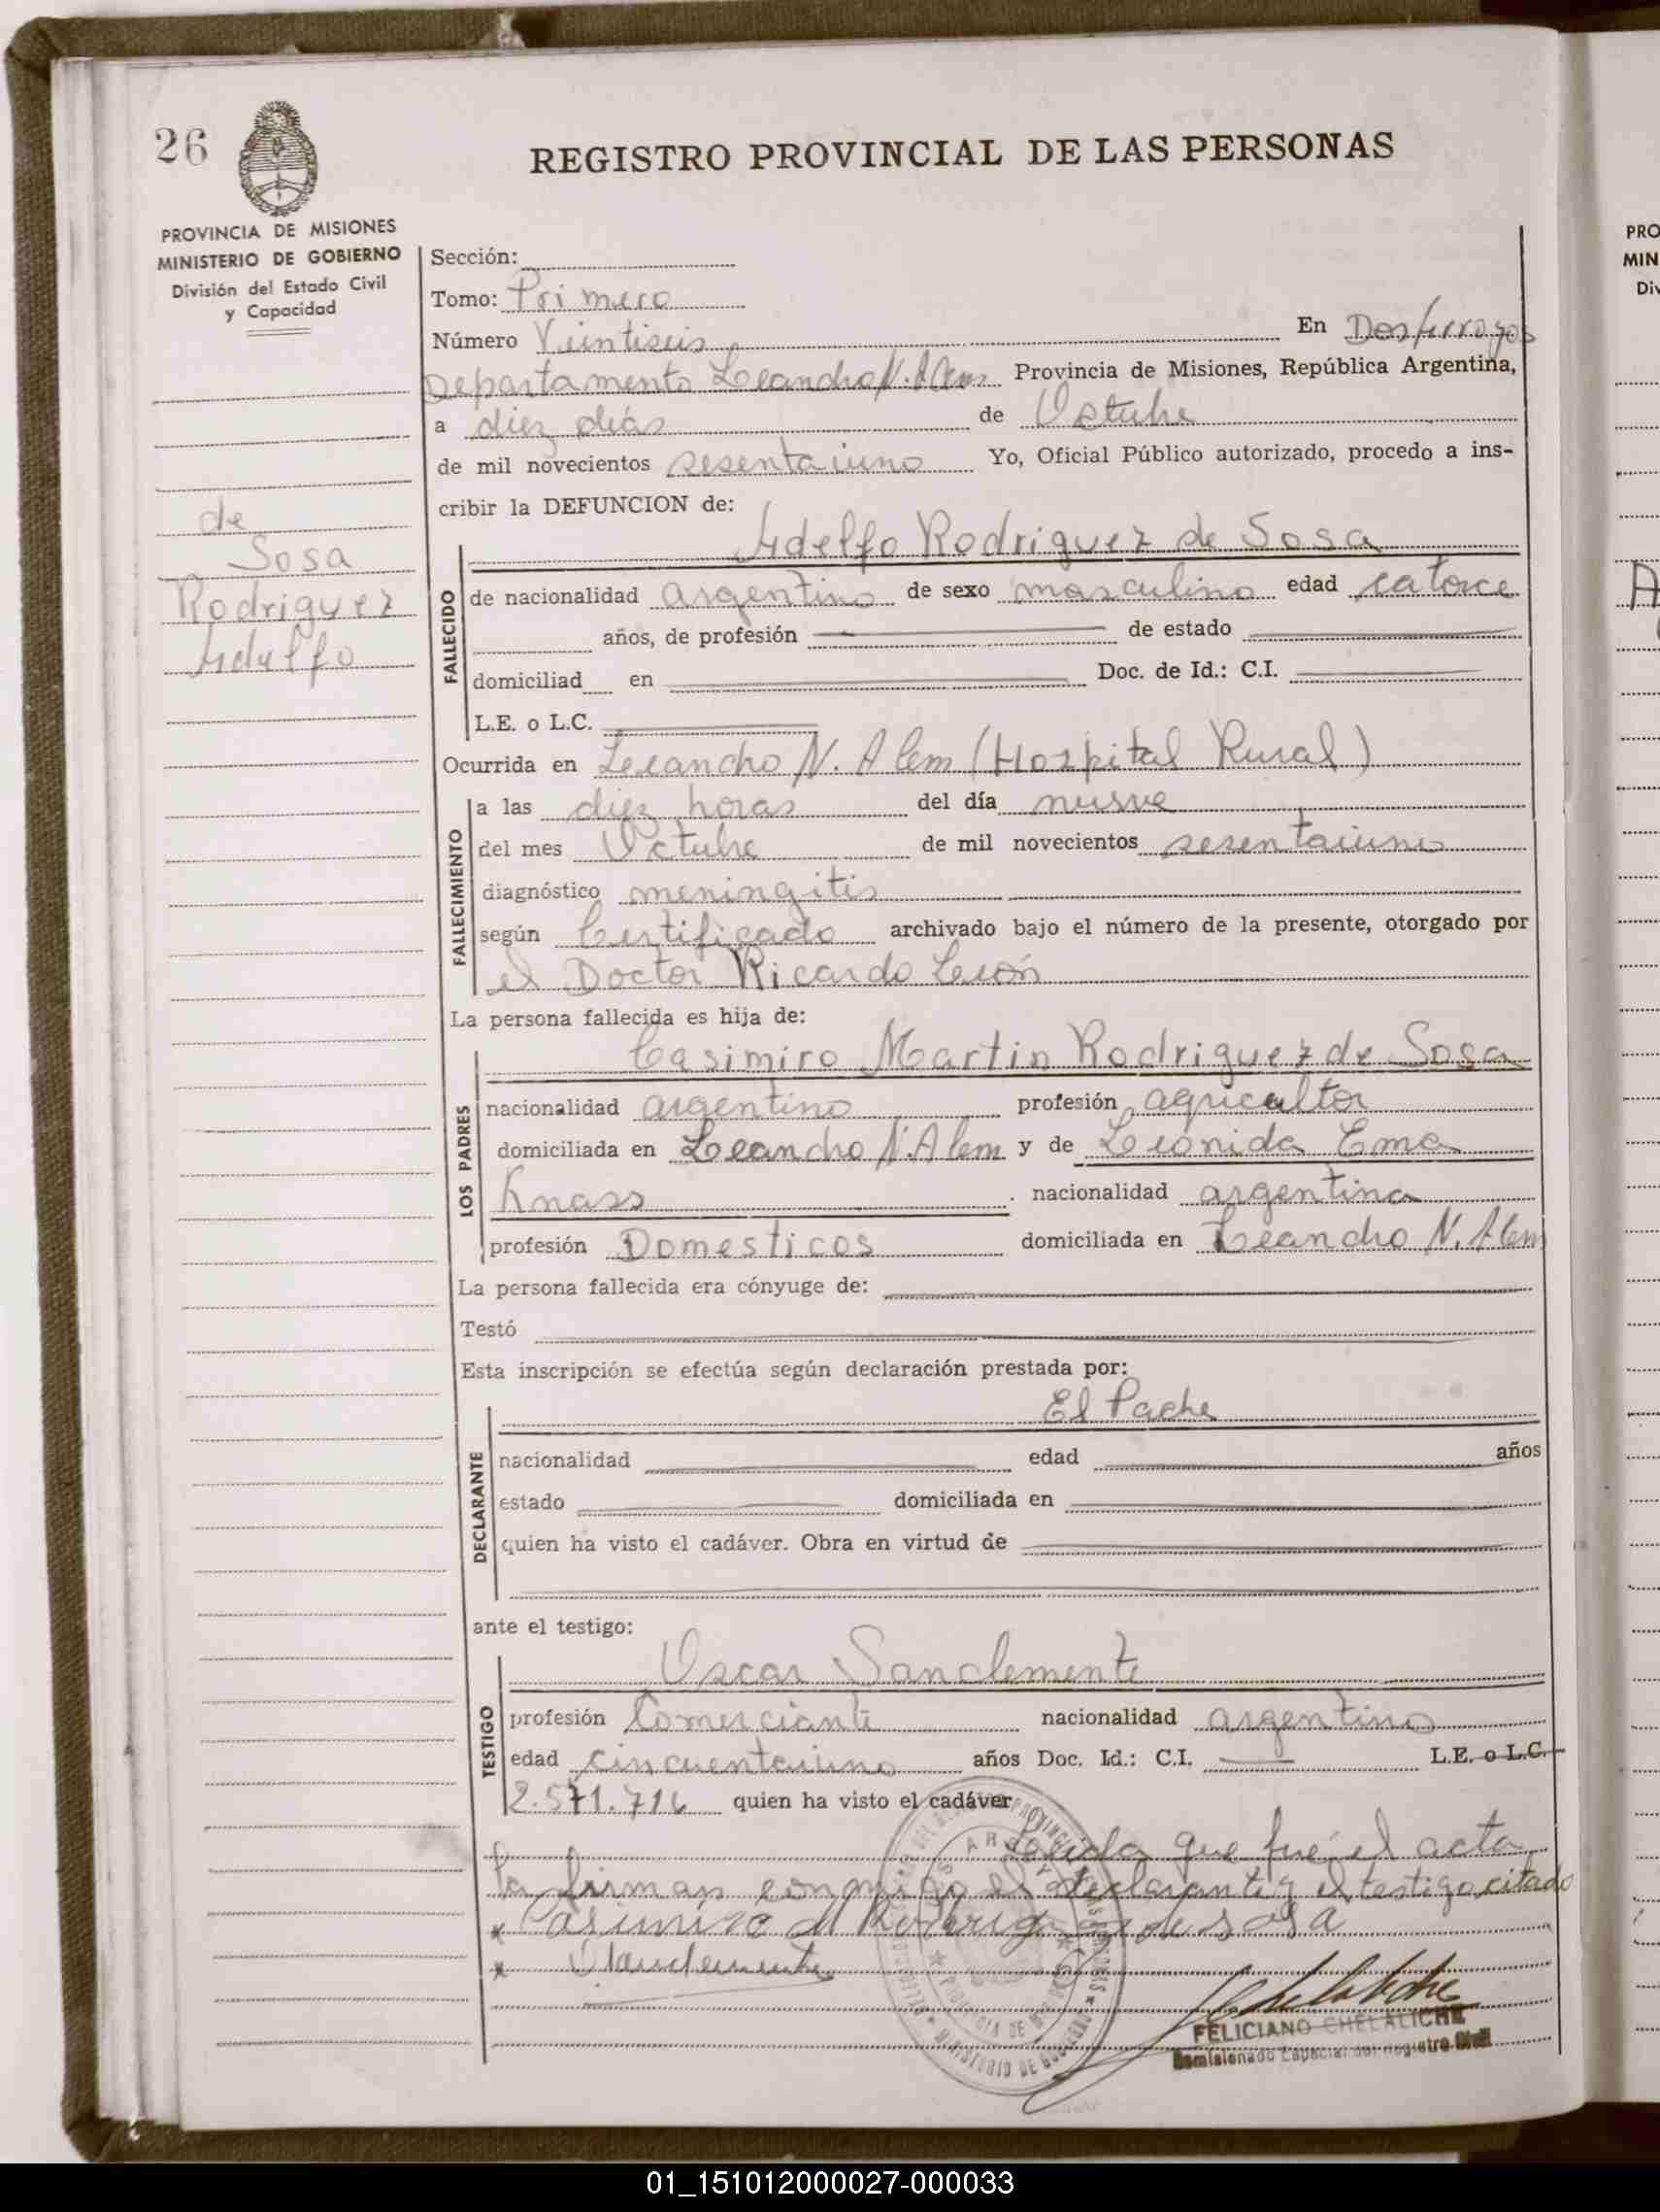 26
REGISTRO PROVINCIAL DE LAS PERSONAS
PROVINCIA DE MISIONES
MINISTERIO DE GOBIERNO
División del Estado Civil
y Capacidad
de
Sosa
Rodriguez
Adelfo
Sección:
Tomo: Primero
Número Veintiseis En Dos Arroyos
Departamento Leandro N. Alem Provincia de Misiones, República Argentina,
a diez días de Octubre
de mil novecientos sesentaiuno Yo, Oficial Público autorizado, procedo a ins-
cribir la DEFUNCION de:
Adelfo Rodriguez de Sosa
FALLECIDO
de nacionalidad argentino de sexo masculino edad catorce
años, de profesión de estado
domiciliad en Doc. de Id.: C.I.
L.E. o L.C.
Ocurrida en Leandro N. Alem (Hospital Rural)
FALLECIMIENTO
a las diez horas del día nueve
del mes Octubre de mil novecientos sesentaiuno
diagnóstico meningitis
según Certificado archivado bajo el número de la presente, otorgado por
el Doctor Ricardo León
La persona fallecida es hija de:
Casimiro Martin Rodriguez de Sosa
LOS PADRES
nacionalidad argentino profesión agricultor
domiciliada en Leandro N. Alem y de Leonida Ema
Knass nacionalidad argentina
profesión Domesticos domiciliada en Leandro N. Alem
La persona fallecida era cónyuge de:
Testó
Esta inscripción se efectúa según declaración prestada por:
El Padre
DECLARANTE
nacionalidad edad años
estado domiciliada en
quien ha visto el cadáver. Obra en virtud de
ante el testigo:
Oscar Sanclemente
TESTIGO
profesión Comerciante nacionalidad argentino
edad cincuentaiuno años Doc. Id.: C.I. L.E. o L.C.
2.571.716 quien ha visto el cadáver
Leida que fué el acta
la firman conmigo el declarante y el testigo citado
Casimiro M Rodriguez de sosa
FELICIANO CHELALICHE
Comisionado Especial del Registro Civil
PRO
MIN
Div
A
01_151012000027-000033